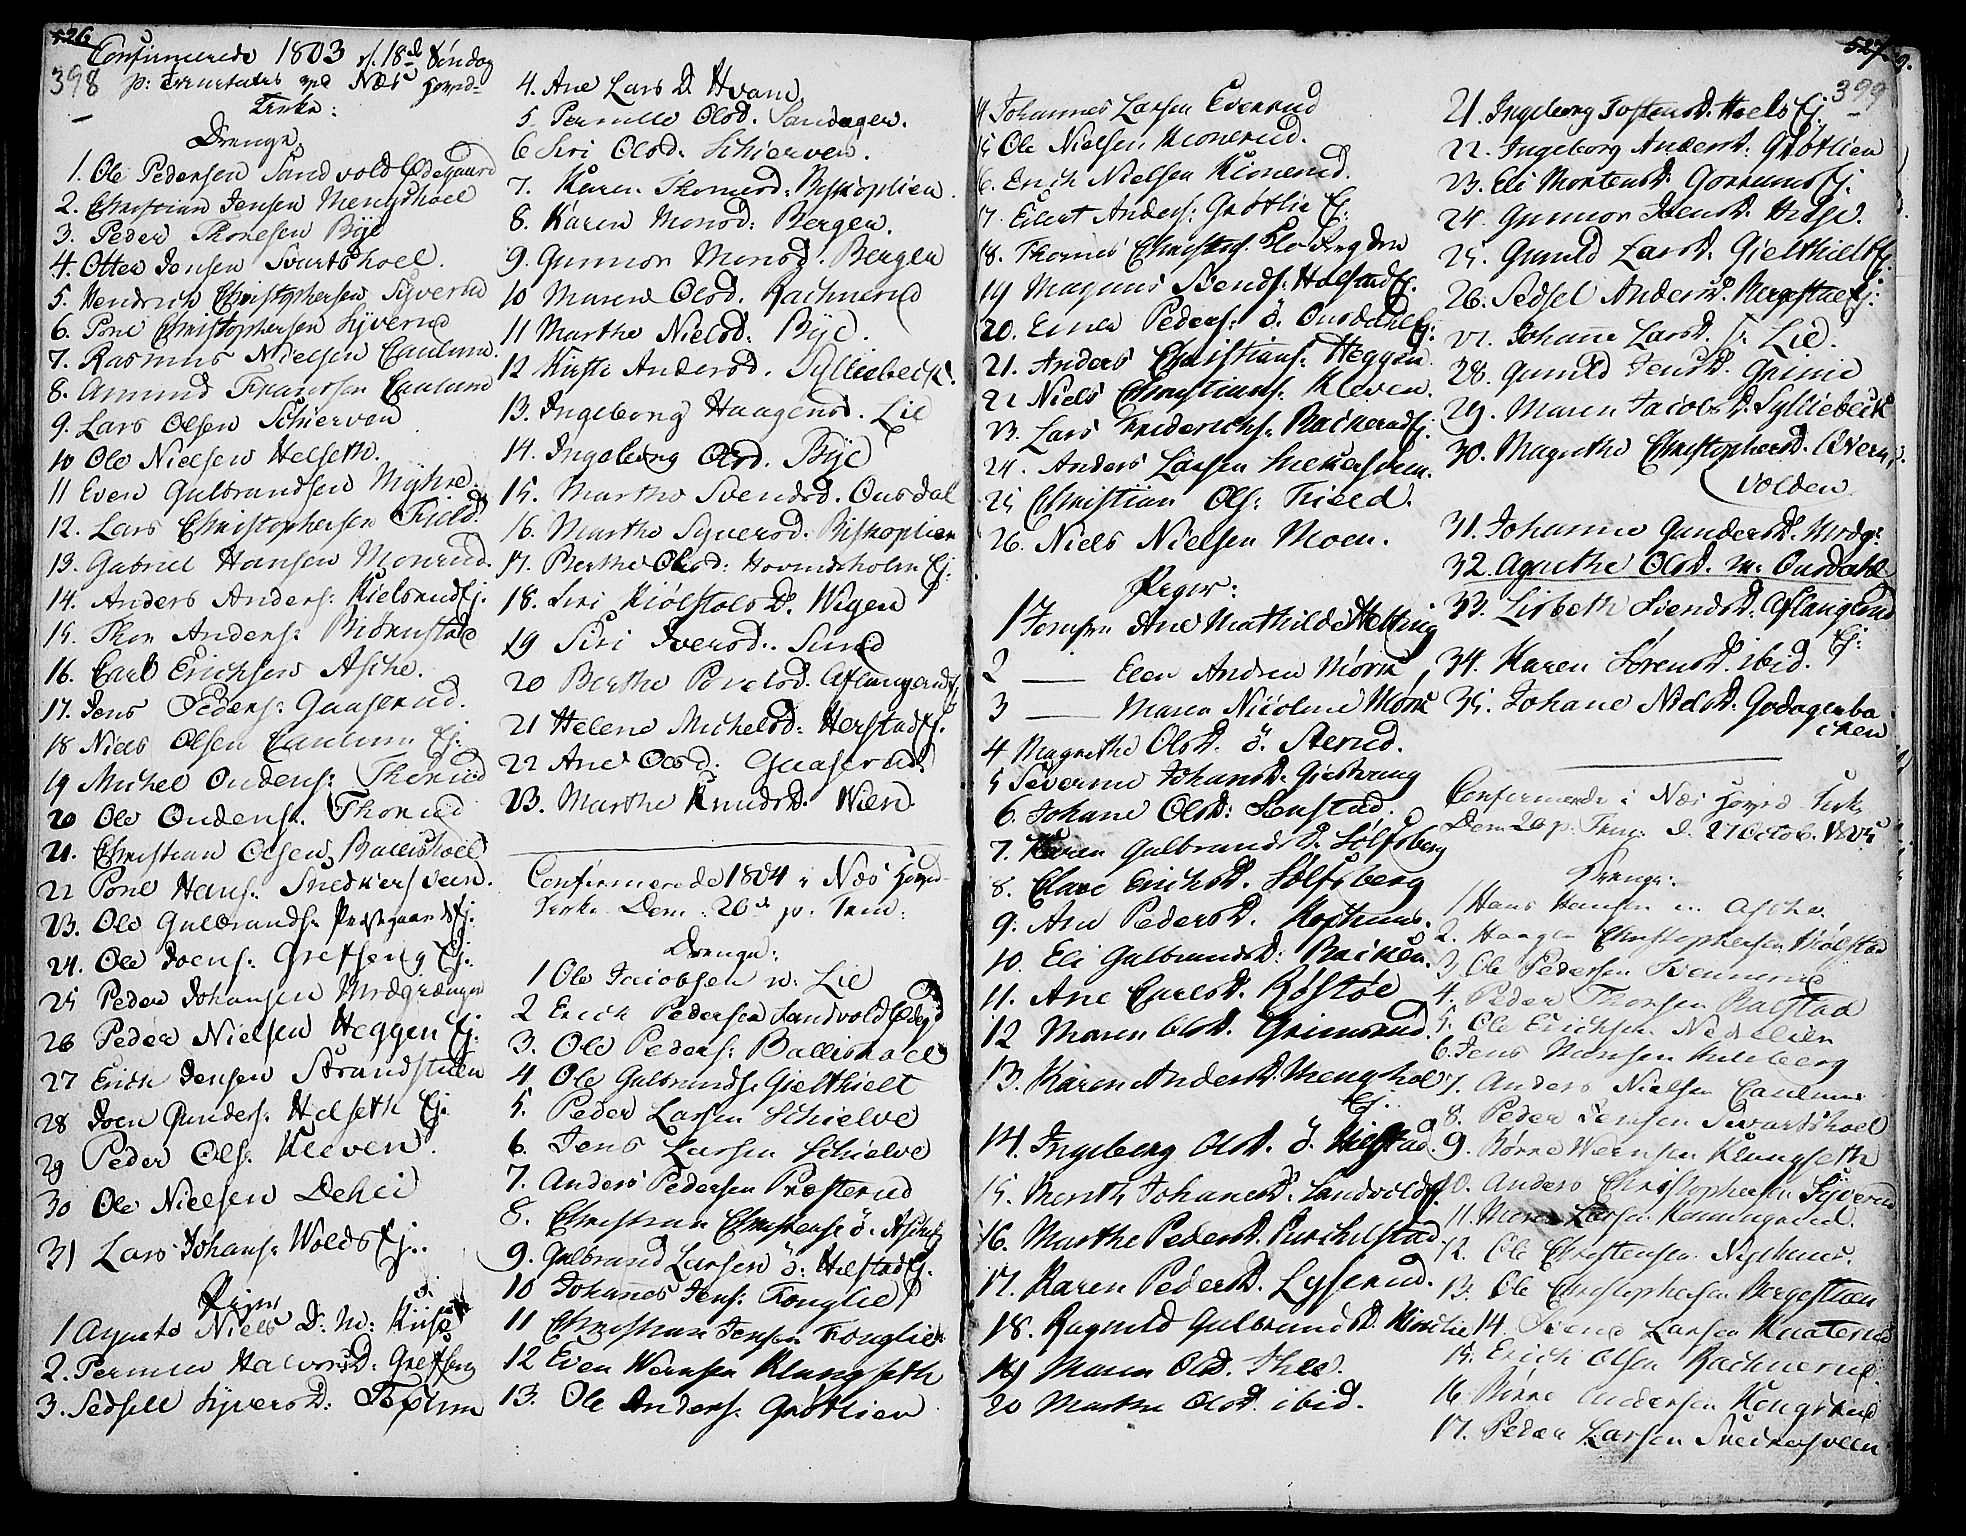 526
398
Confirmerede 1803 d. 18d Søndag
p: Trinitatis ved Næs Hoved-
Kirke:
Drenge.
1. Ole Pedersen Sandvold Ødegaard
2. Christian Jensen Mengshoel
3. Peder Thoresen Bÿe
4. Otter Jensen Svartshoel.
5. Hendrich Christophersen Syverud
6. Poul Christophersen Syverud
7. Rasmus Nielsen Caulum.
8. Amund Frantsen Caulum
9. Lars Olsen Schierven
10 Ole Nielsen Helseth.
11 Even Gulbrandsen Myhre.
12. Lars Christophersen Field.
13. Gabriel Hansen Monrud.
14. Anders Anders: Kielsrud Ej.
15. Thor Anders: Biørnstad
16. Carl Erichsen Asche.
17. Jens Peders: Gaaserud.
18 Niels Olsen Caulum Ej:
19 Michel Oudens: Thorud
20 Ole Oudens. Thorud
21. Christian Olsen Ballishoel
22 Poul Hans: Snedkersveen.
23. Ole Gulbrands: Præstgaards Ej.
24. Ole Joens: Grefseng Ej:
25 Peder Johansen
26 Peder Nielsen Heggen Ej:
27 Erich Jensen Strandstuen
28 Joen Gunders: Helseth Ej.
29 Peder Ols: Kleven.
30 Ole Nielsen Dehli
31 Lars Johans: Wolds Ej.
Piger
1 Agnete Niels D. N: Kiise
2. Pernille Halvors D: Grefseng
3. Sedsele Syvers D:
4. Ane Lars D. Hvam
5. Pernille Olsd. Sandager.
6 Siri Olsd: Schierven.
7. Karen Thomesd: Biskoplien.
8. Karen Monsd: Bergen.
9. Gunnor Monsd. Bergen
10 Maren Olsd. Rachnerud
11 Marthe Nielsd: Bÿe.
12 Kirsti Andersd. Sylliebech.
13. Ingeborg Haagensd. Lie
14. Ingeborg Olsd. Bÿe
15. Marthe Svendsd. Ousdal
16. Marthe Syversd. Biskoplien
17. Berthe Olsd: Hovindsholm Ej:
18. Siri Kiølstols D. Wigen
19 Siri Iversd. Sund
20 Berthe Povelsd. Aflangerud Ej
21 Helene Michelsd: Herstad Ej.
22 Ane Olsd. Gaaserud.
23. Marthe Knuds D. Wien.
Confirmerede 1804 i Næs Hoved-
Kirke Dom: 26d p. Trin:
Drenge:
1 Ole Jacobsen n: Lie
2 Erich Pedersen Sandvold Ødegd
3. Ole Peders: Ballishoel
4 Ole Gulbrands: Gielthielt
5. Peder Larsen Schielve
6 Jens Larsen Schielve
7. Anders Pedersen Præsterud
8. Christian Christens: ö.
9. Gulbrand Larsen ö: Helstad Ej.
10 Johañes Jens: Fonglie
11 Christian Jensen Fonglie.
12 Even Wernsen Klungseth
13. Ole Anders: Grøtlien
527
399
14 Johannes Larsen Evenrud
15 Ole Nielsen Kionerud.
16. Erich Nielsen Kionerud.
17. Eilert Anders: Grøtlie Ej:
18. Thomes
19 Magnus Svends: Holstad Ej.
20. Einer Peders: ö. Ousdahl Ej:
21. Anders Christians: Heggen
22 Niels Christians. Kleven.
23. Lars Friderichs: Backerud Ej.
24. Anders Larsen Snekersveen.
25 Christian Ols: Field.
26. Niels Nielsen Moen.
Piger:
1 Jomfru Ane Mathilde Hetting
2 — Elen Andrea Mörk,
3 — Maren Nicoline Mörk
4 Magrethe Ols D. ö. Sterud.
5 Severine Johans D. Giestvang
6. Johane Ols D: Senstad.
7. Karen Gulbrands D. Sölfsberg
8. Clare Erichs D. Sölfsberg
9. Ane Peders D. Kosthuus.
10. Eli Gulbrands D: Backen.
11. Ane Carls D. Røstøe
12 Maren Ols D. Grimsrud.
13. Karen Anders D. Mengshol
Ej.
14. Ingeborg Ols D. ö. Helstad.
15. Marthe Johanes D. Sandvold Ej.
16. Marthe Peders D. Purchelstad.
17. Karen Peders D. Lyserud.
18. Ragnild Gulbrands D.
19 Maren Ols D.
20 Marthe Ols D. ibid.
21. Ingeborg Tostens D. Hoels Ej.
22. Ingeborg Anders D: Grøtlien
23. Eli Mortens D.
24. Gunnor Jens D. Helge.
25. Gunild Lars D. Gielthielt Ej.
26. Sedsel Anders D. Bergestue Ej.
27. Johañe Lars D. s. Lie.
28. Gunild Jens D. Grime
29. Maren Jacobs D. Sylliebech
30. Magrethe Christophers D. Qvern-
(volden
31. Johanne Gunders D.
32. Agnethe Ols D. n. Ousdahl
33. Lisbeth Svends D. Aflangerud
Ej:
34. Karen Sörens D. ibid.
35. Johane Niels D. Godagerba-
cken
Confirmerede i Næs Hoved Kirke
Dom. 20 p. Trin: d. 27 Octob. 1805
Drenge:
1 Hans Hansen n. Asche.
2. Haagen Christophersen Kiølstad
3. Ole Pedersen Svennerud
4. Peder Thorsen Balstad
5. Ole Erichsen Nedlien
6. Jens Monsen Huleberg
7. Anders Nielsen Caulum
8. Peder Jensen Svartshoel
9. Börre Wernsen Klungseth
10. Anders Christophersen Syverud
11. Mons Larsen Kanningsrud.
12. Ole Christensen Nyehuus.
13. Ole Christophersen Bergestuen
14 Svend Larsen Knaterud
15. Erich Olsen Rachnerud.
16 Börre Andersen Kongsrud
17. Peder Larsen Snedkersveen